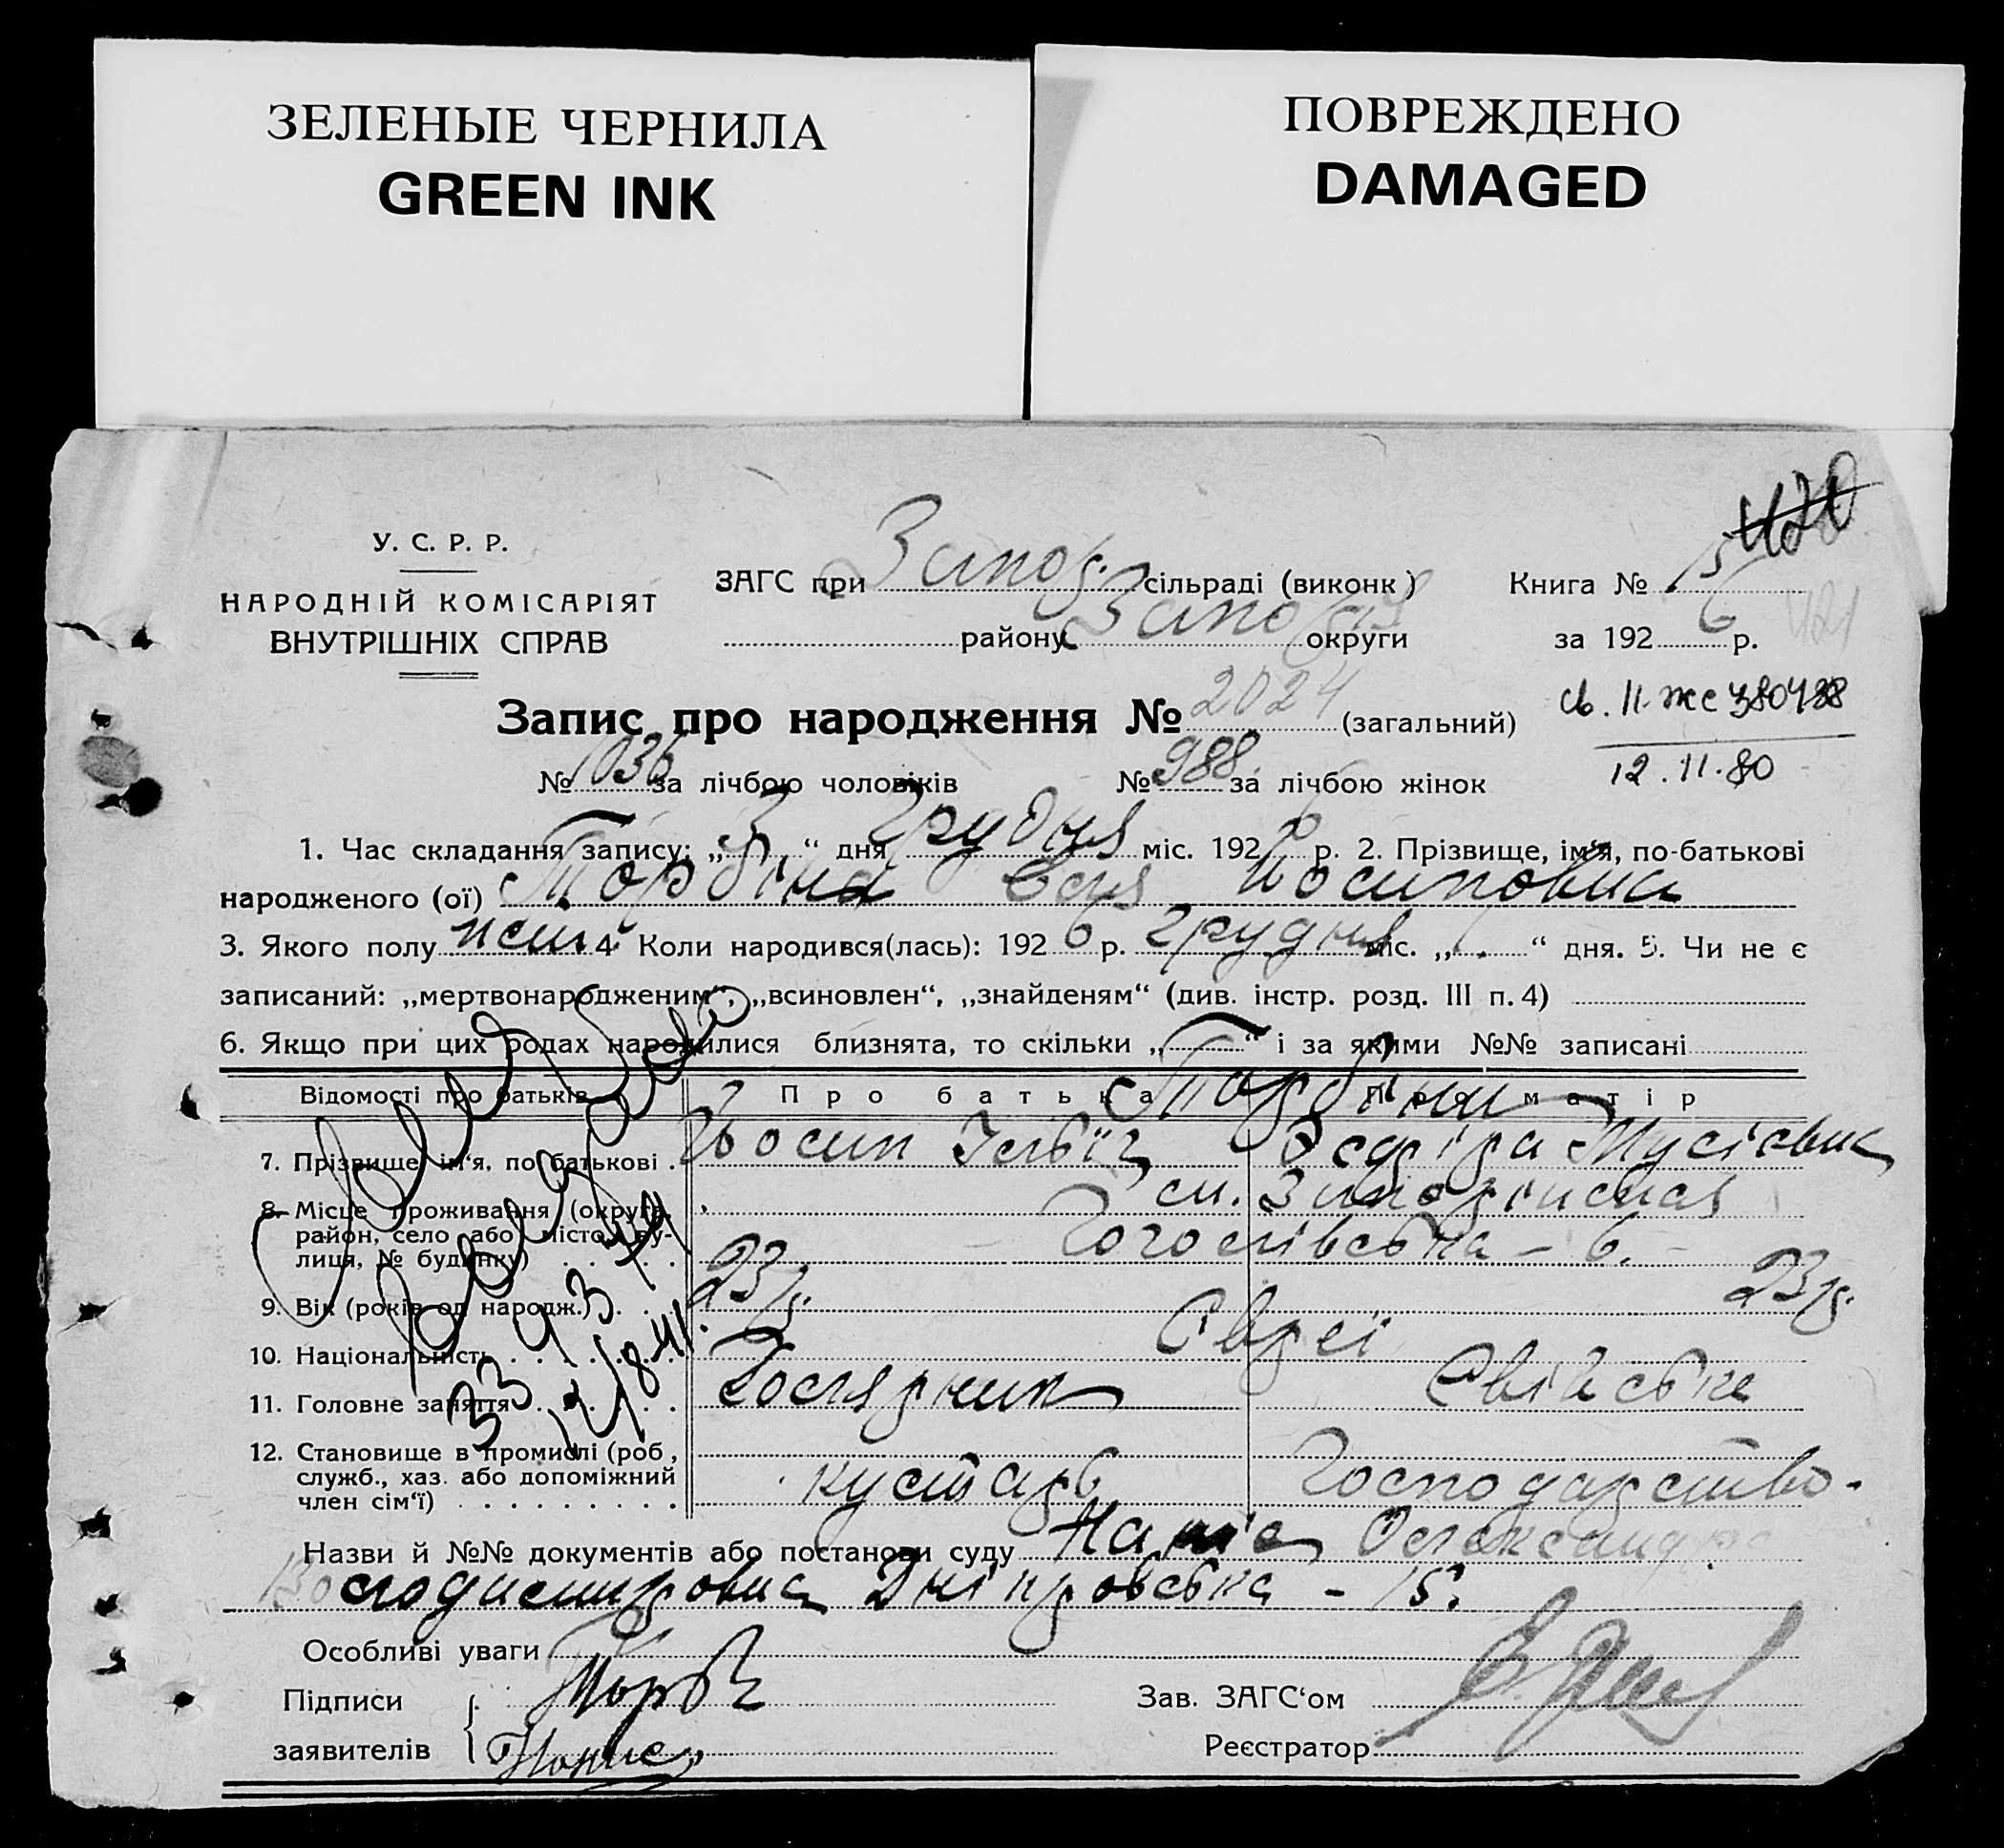 ЗЕЛЕНЫЕ ЧЕРНИЛА
GREEN INK
ПОВРЕЖДЕНО
DAMAGED
420
У. С. Р. Р.
НАРОДНІЙ КОМІСАРІЯТ
ВНУТРІШНІХ СПРАВ
ЗАГС при Запор. сільраді (виконк)
району округи
Книга № 15
за 1926 р.
421
св. II-жс
12.11.80
Запис про народження № 2024 (загальний)
№ 1036 за лічбою чоловіків № 988 за лічбою жінок
1. Час складання запису: „3“ дня Грудня міс. 1926 р. 2. Прізвище, ім'я, по-батькові
народженого (ої) Торбіна Йосиповна
3. Якого полу жін. 4 Коли народився(лась): 1926 р. Грудня міс. „1“ дня. 5. Чи не є
записаний: „мертвонародженим“, „всиновлен“, „знайденям“ (див. інстр. розд. III п. 4)
6. Якщо при цих родах народилися близнята, то скільки „ “ і за якими №№ записані
Відомості про батьків Про батька Про матір
Торбіни
7. Прізвище, ім'я, по батькові Йосип Мусієвна
8. Місце проживання (округа, м. Запоріжжя
район, село або місто, ву-
лиця, № будинку) Гоголівська – 6.
9. Вік (років од народж.) 23 р. 23 р.
10. Національність Євреї
11. Головне заняття
12. Становище в промислі (роб,
служб., хаз. або допоміжний кустарь Господарство.
член сім'ї)
Назви й №№ документів або постанови суду Олександро
Дніпровська – 15.
Особливі уваги
Підписи
заявителів
Зав. ЗАГС'ом
Реєстратор
12/8-41.